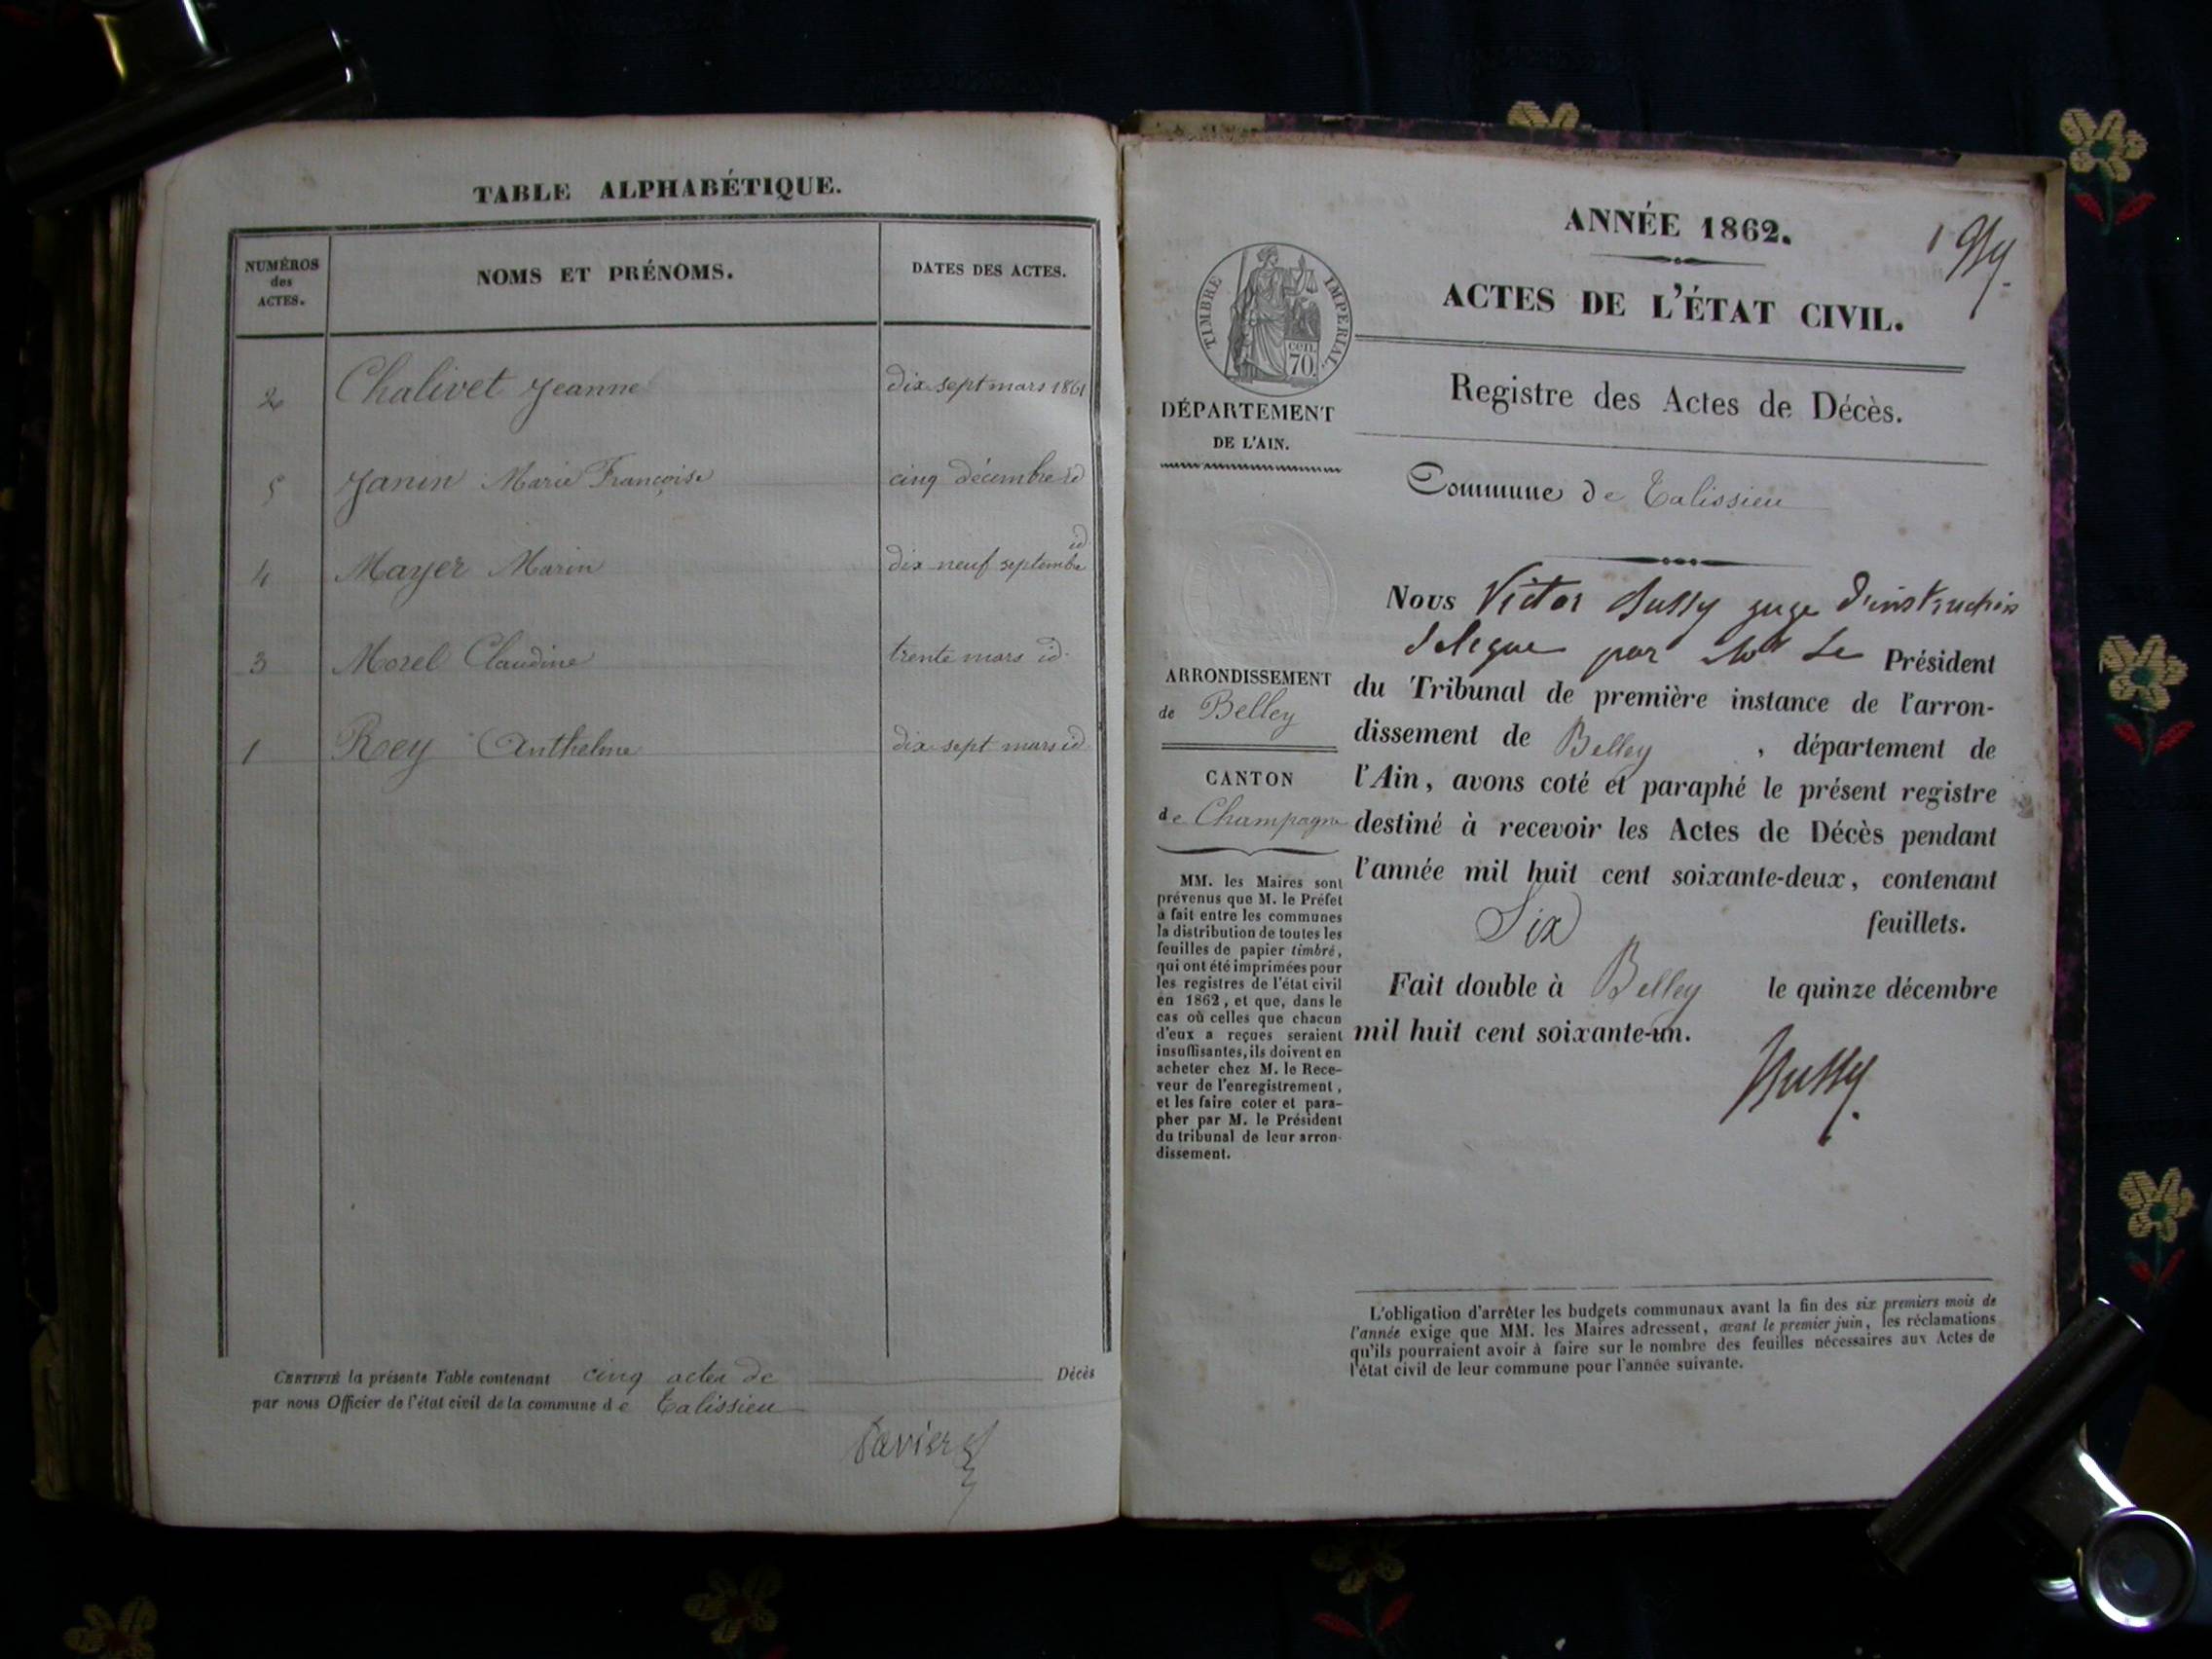 TABLE ALPHABÉTIQUE.
NUMÉROS
des
ACTES.
NOMS ET PRÉNOMS.
DATES DES ACTES.
2 Chalivet Jeanne dix sept mars 1861
5 Janin Marie Françoise cinq décembre id
4 Mayer Marin dix neuf septembre id
3 Morel Claudine trente mars id.
1 Rey Anthelme dix sept mars id
CERTIFIÉ la présente Table contenant cinq actes de Décès
par nous Officier de l'état civil de la commune de Talissieu
ANNÉE 1862.
1
ACTES DE L'ÉTAT CIVIL.
TIMBRE IMPERIAL.
cen.
70.
Registre des Actes de Décès.
DÉPARTEMENT
DE L'AIN.
Commune de Talissieu
ARRONDISSEMENT
de Belley
CANTON
de Champagne
MM. les Maires sont
prévenus que M. le Préfet
a fait entre les communes
la distribution de toutes les
feuilles de papier timbré,
qui ont été imprimées pour
les registres de l'état civil
en 1862, et que, dans le
cas où celles que chacun
d'eux a reçues seraient
insuffisantes, ils doivent en
acheter chez M. le Rece-
veur de l'enregistrement,
et les faire coter et para-
pher par M. le Président
du tribunal de leur arron-
dissement.
Nous Victor juge d'instruction
délégué par Mr Le Président
du Tribunal de première instance de l'arron-
dissement de Belley, département de
l'Ain, avons coté et paraphé le présent registre
destiné à recevoir les Actes de Décès pendant
l'année mil huit cent soixante-deux, contenant
Six feuillets.
Fait double à Belley le quinze décembre
mil huit cent soixante-un.
L'obligation d'arrêter les budgets communaux avant la fin des six premiers mois de
l'année exige que MM. les Maires adressent, avant le premier juin, les réclamations
qu'ils pourraient avoir à faire sur le nombre des feuilles nécessaires aux Actes de
l'état civil de leur commune pour l'année suivante.